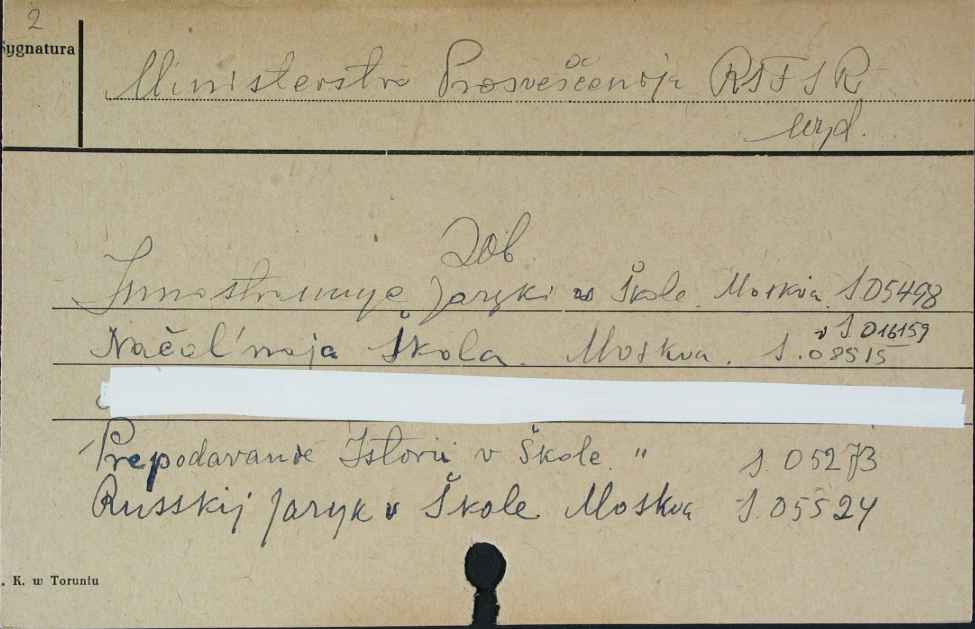 2
Sygnatura
Ministerstvo Prosveščenija RSFSR
wyd.
Zob.
Innostrannye Jazyki v Škole. Moskva. S 05498
v S 016159
Načal'naja Škola. Moskva. S. 08515
Prepodavanie Istorii v Škole. " S. 05273
Russkij Jazyk v Škole Moskva S. 05524
. K. w Toruniu